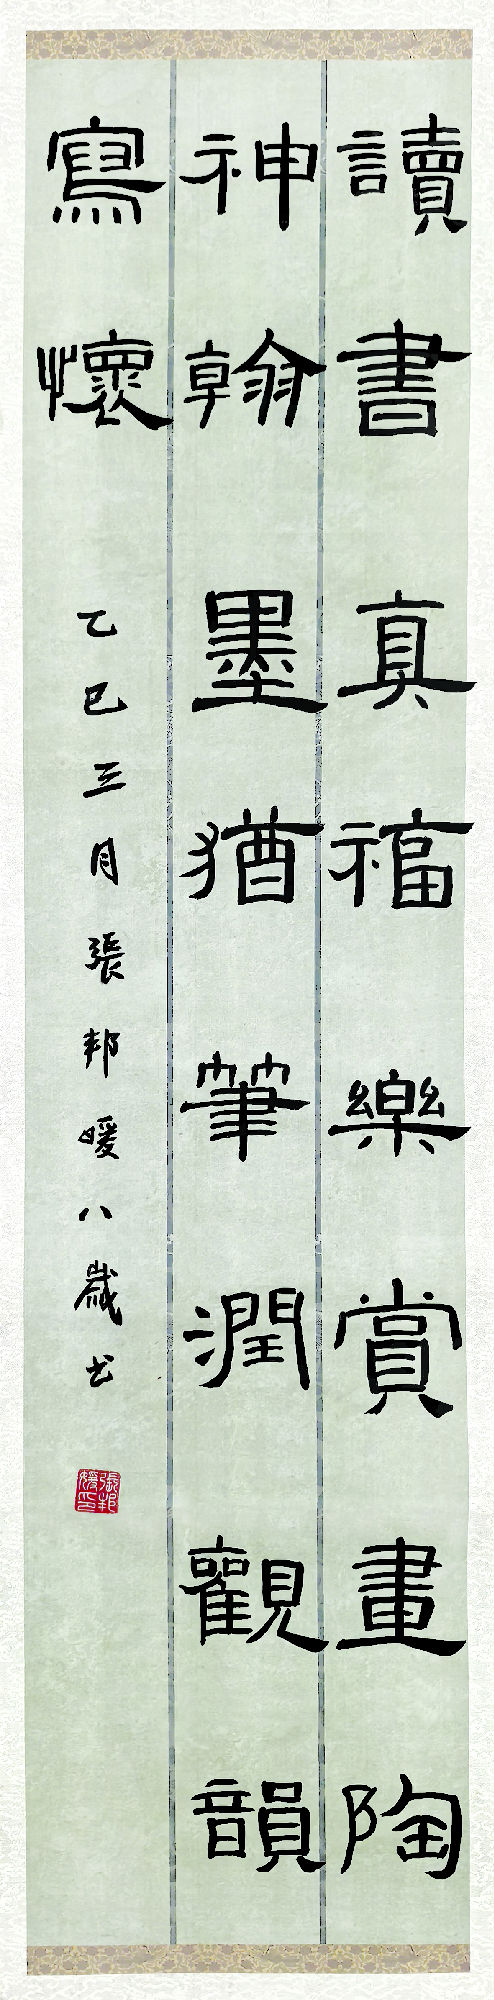 讀書真福樂賞畫陶
神翰墨猶筆潤觀韻
寫懷
乙巳三月張邦暖八歲書
張邦暖印